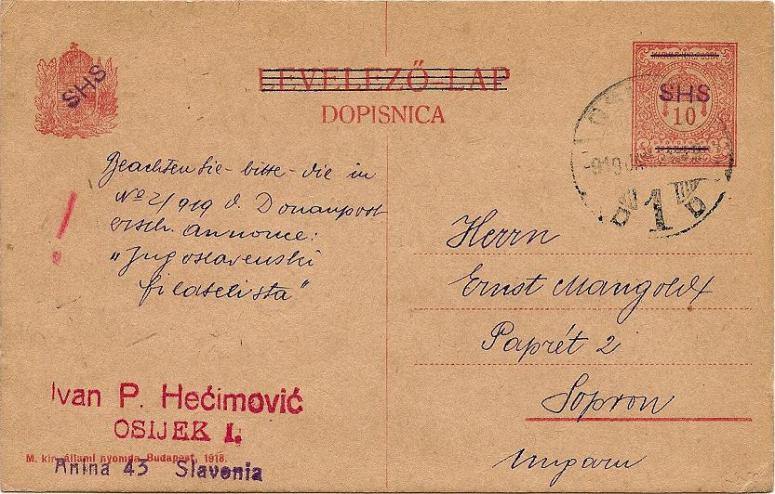 SHS
LEVELEZŐ LAP
DOPISNICA
SHS
10
919
Beachten Sie - bitte - die in
No 2/919 d. Donaupost
ersch. Annonce:
"Jugoslavenski
filatelista"
!
Herrn
Ernst Mangoldt
Paprét 2
Sopron
Ungarn
Ivan P. Hećimović
OSIJEK I.
M. kir. állami nyomda Budapest, 1918.
Anina 43 Slavonia